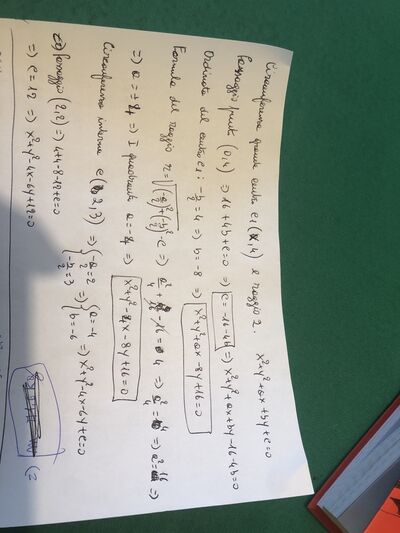 Circonferenza grande centro C1 (2,4) e raggio 2. x²+y²+ax+by+c=0
Passaggio punto (0,4) => 16+4b+c=0 => c=-16-4b => x²+y²+ax+by-16-4b=0
Ordinata del centro C1: -b/2=4 => b=-8 => x²+y²+ax-8y+16=0
Formula del raggio r=√((-a/2)²+(-b/2)²-c) => a²/4+16-16=4 => a²/4=4 => a²=16 =>
=> a=±4 => I quadrante a=-4 => x²+y²-4x-8y+16=0
Circonferenza interna C(2,3) => {-a/2=2 -b/2=3 => {a=-4 b=-6 => x²+y²-4x-6y+c=0
Passaggio (2,2) => 4+4-8-12+c=0
=> c=12 => x²+y²-4x-6y+12=0